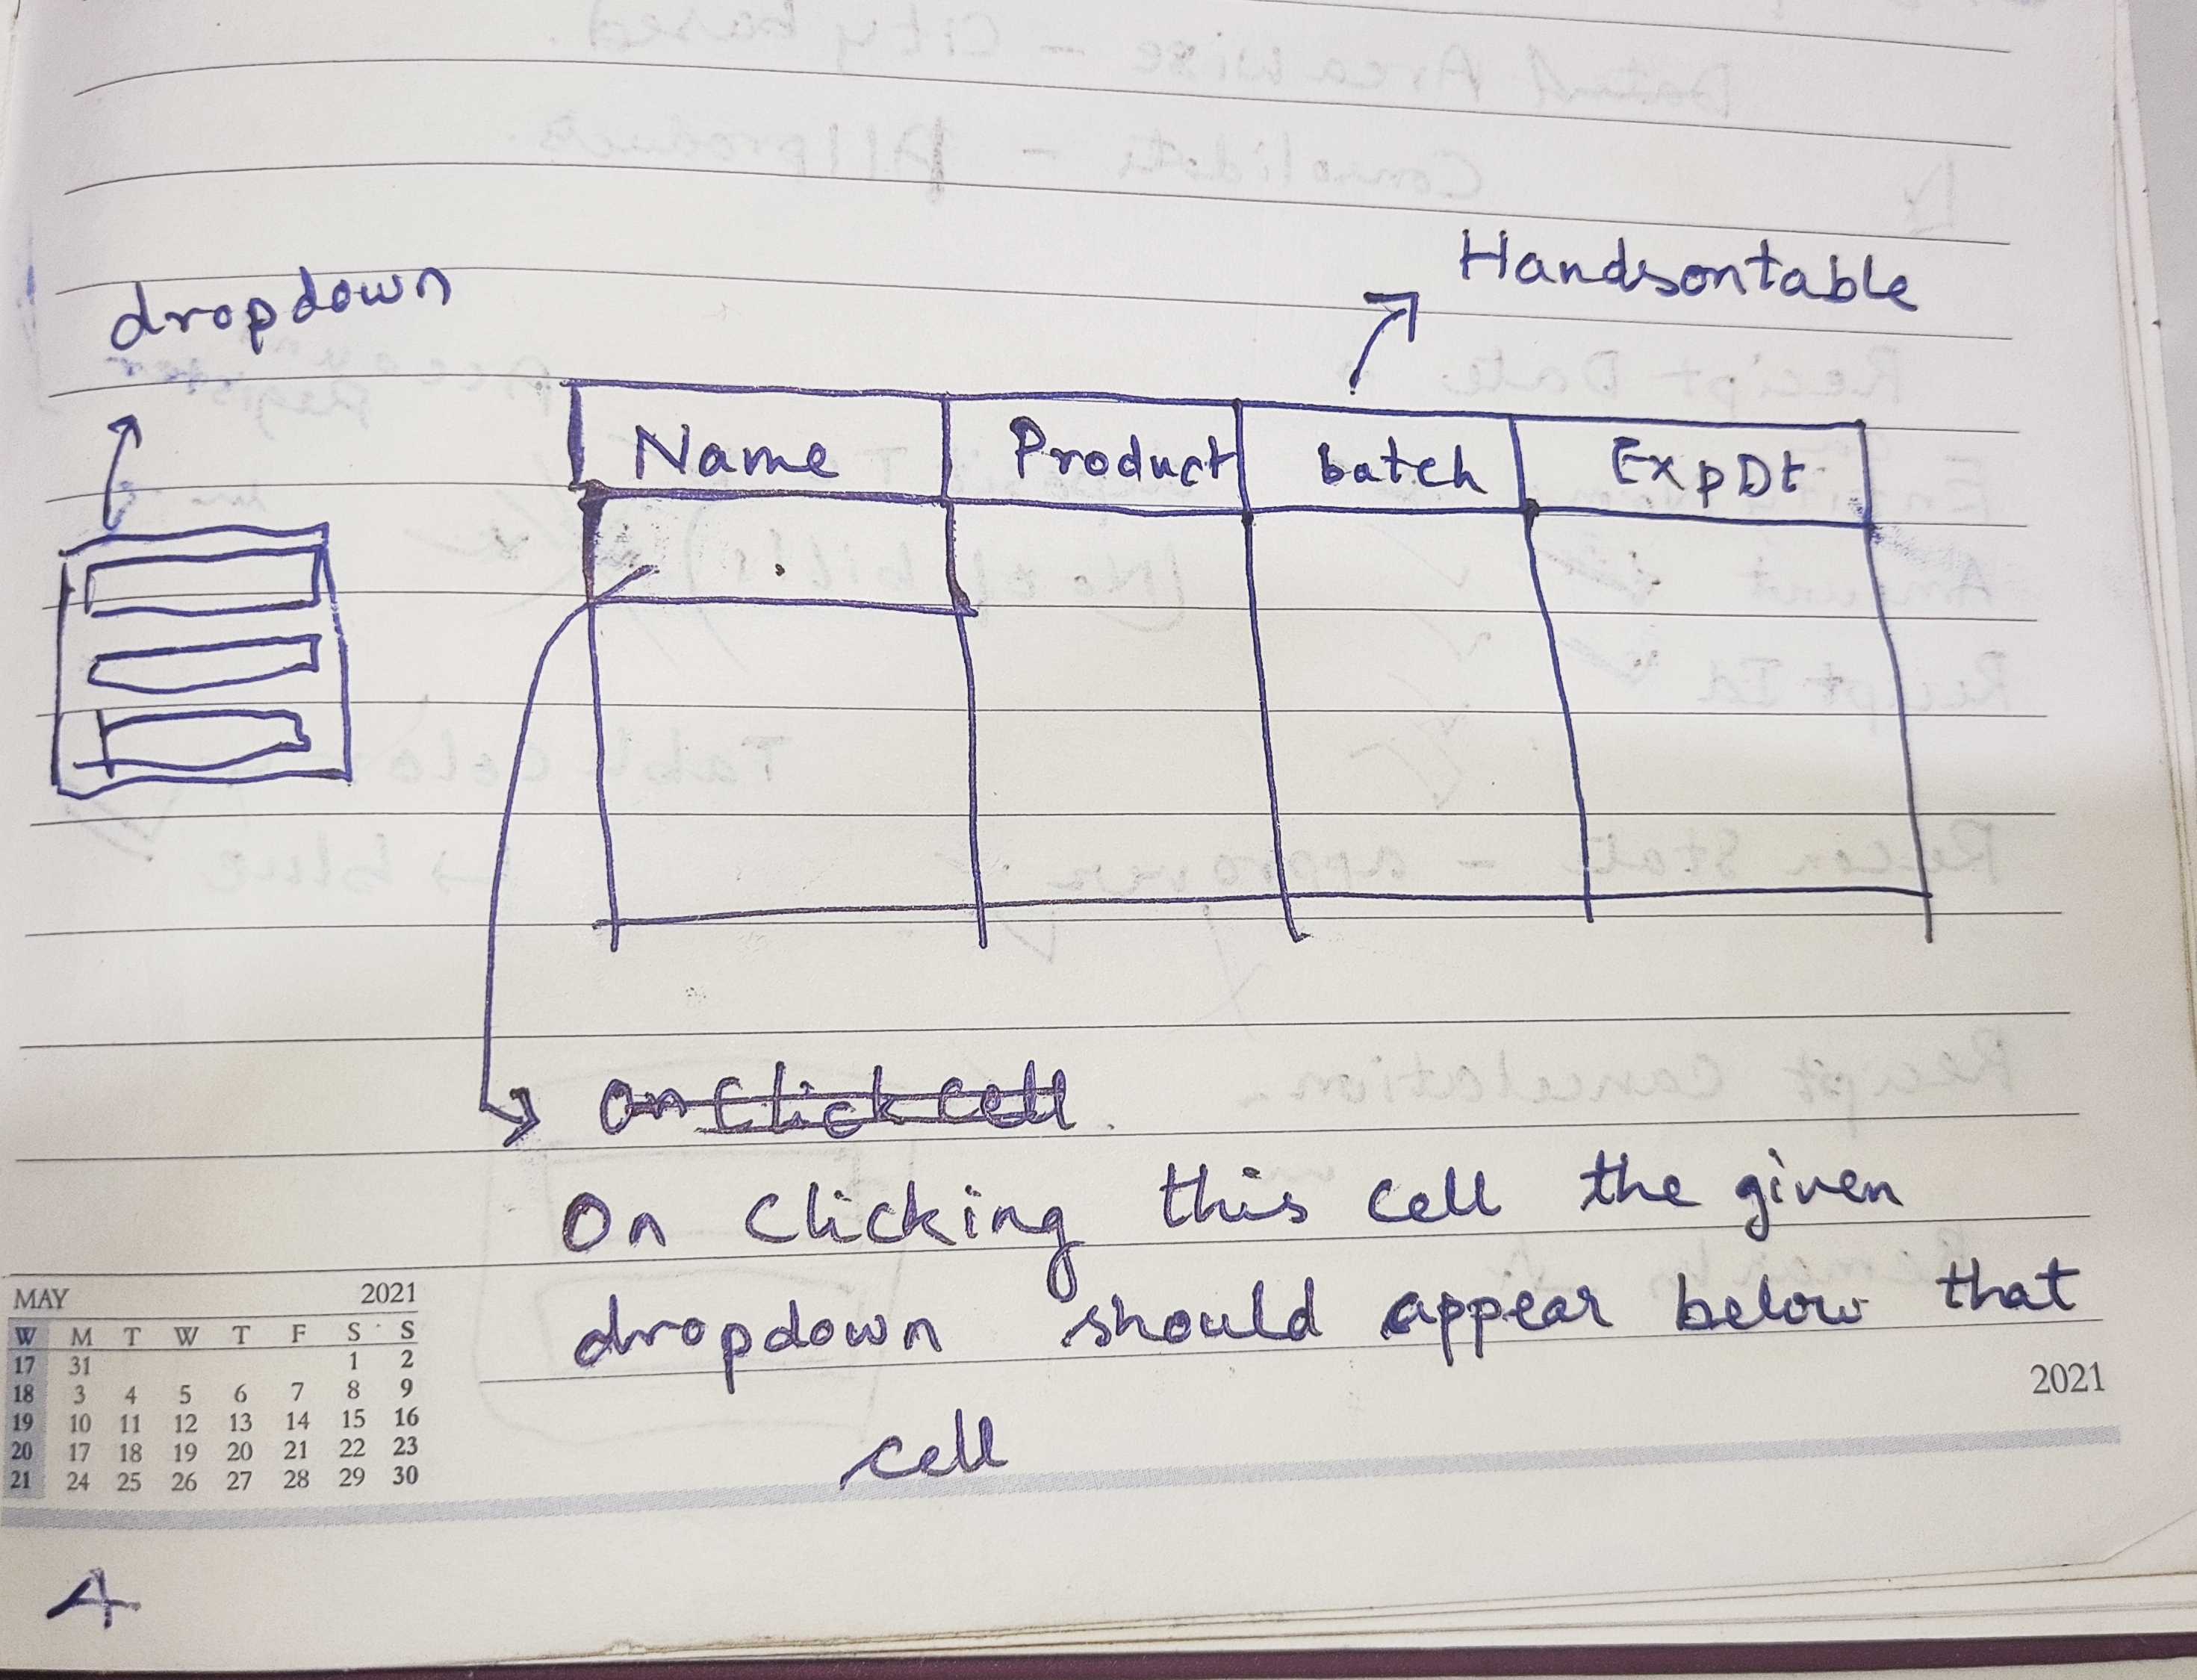 dropdown
Handsontable
Name Product batch ExpDt
On Click Cell
On Clicking this cell the given
dropdown should appear below that
cell
MAY 2021
W M T W T F S S
17 31 1 2
18 3 4 5 6 7 8 9
19 10 11 12 13 14 15 16
20 17 18 19 20 21 22 23
21 24 25 26 27 28 29 30
2021